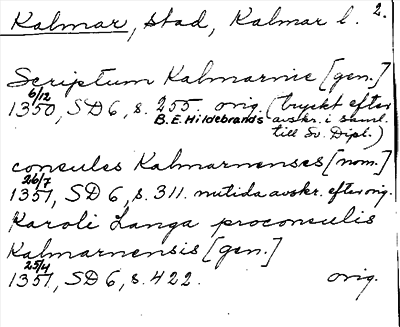 Kalmar, stad, Kalmar l. 2.
Scriptum Kalmarnie [gen.]
6/12
1350, SD 6, s. 255. orig. (tryckt efter
B. E. Hildebrands avskr. i saml.
till Sv. Dipl.)
consules Kalmarnenses [nom.]
26/7
1351, SD 6, s. 311. nutida avskr. efter orig.
Karoli Langa proconsulis
Kalmarnensis [gen.]
25/4
1351, SD 6, s. 422. orig.